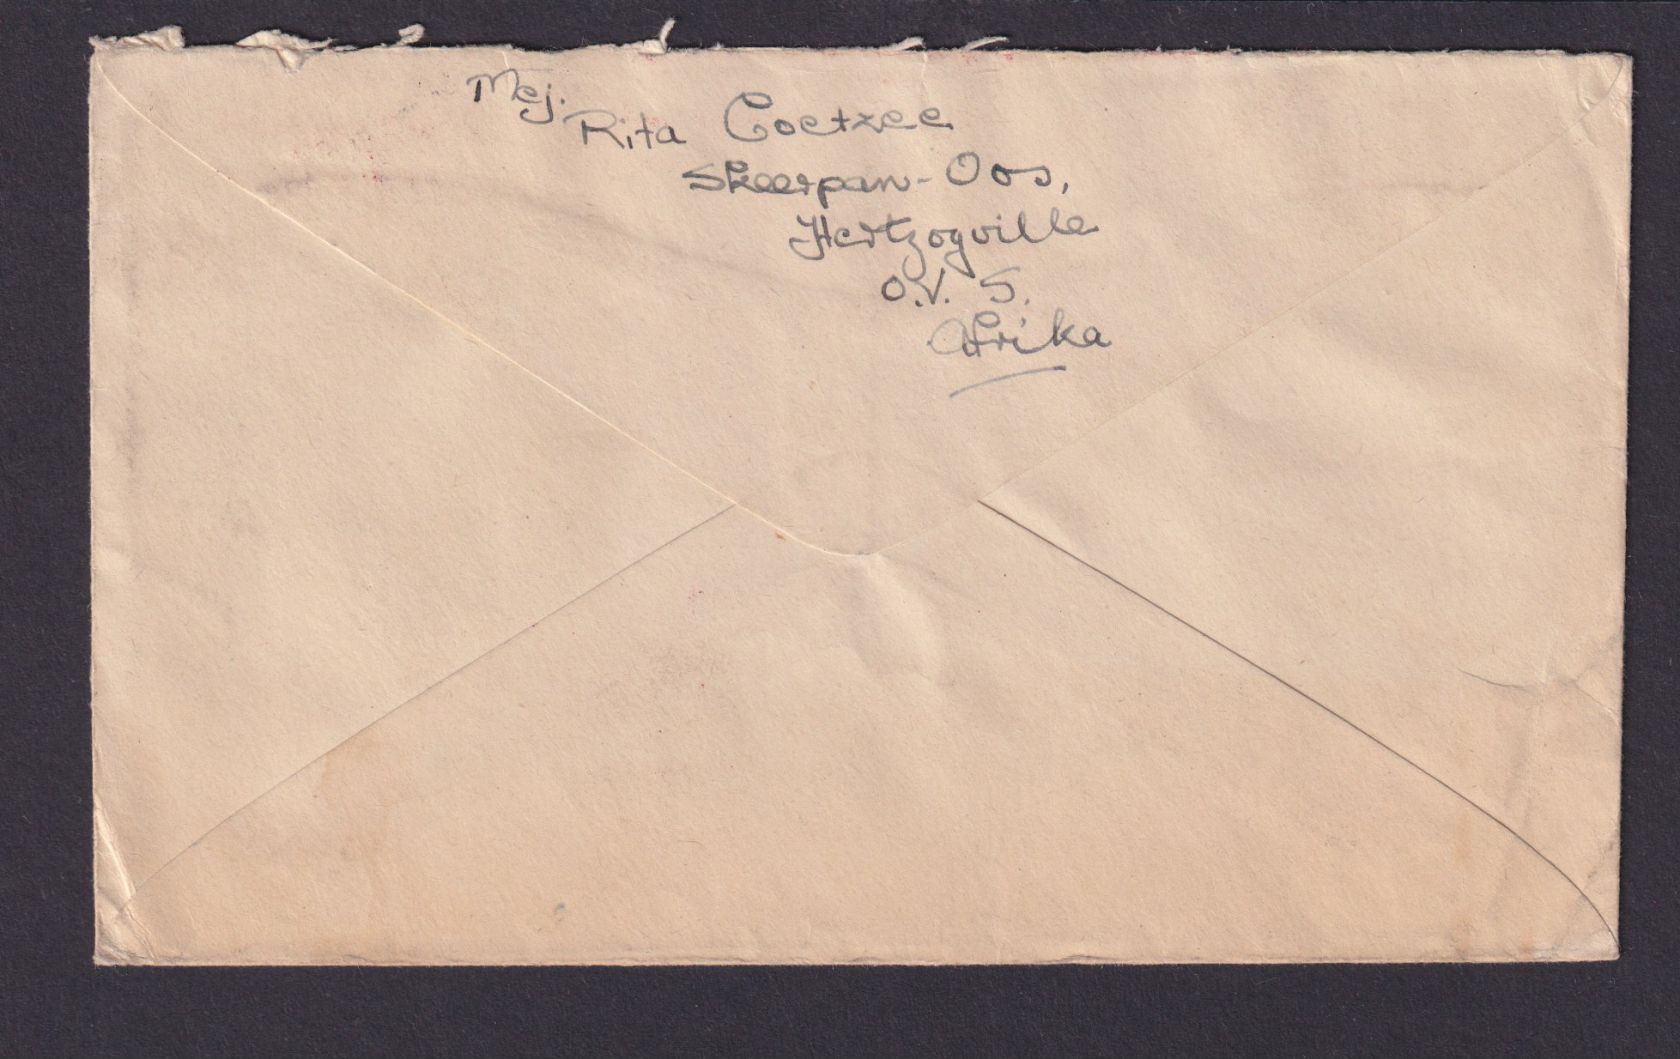 Mej.
Rita Coetzee
Skeerpan-Oos,
Hertzogville
O.V.S.
Afrika